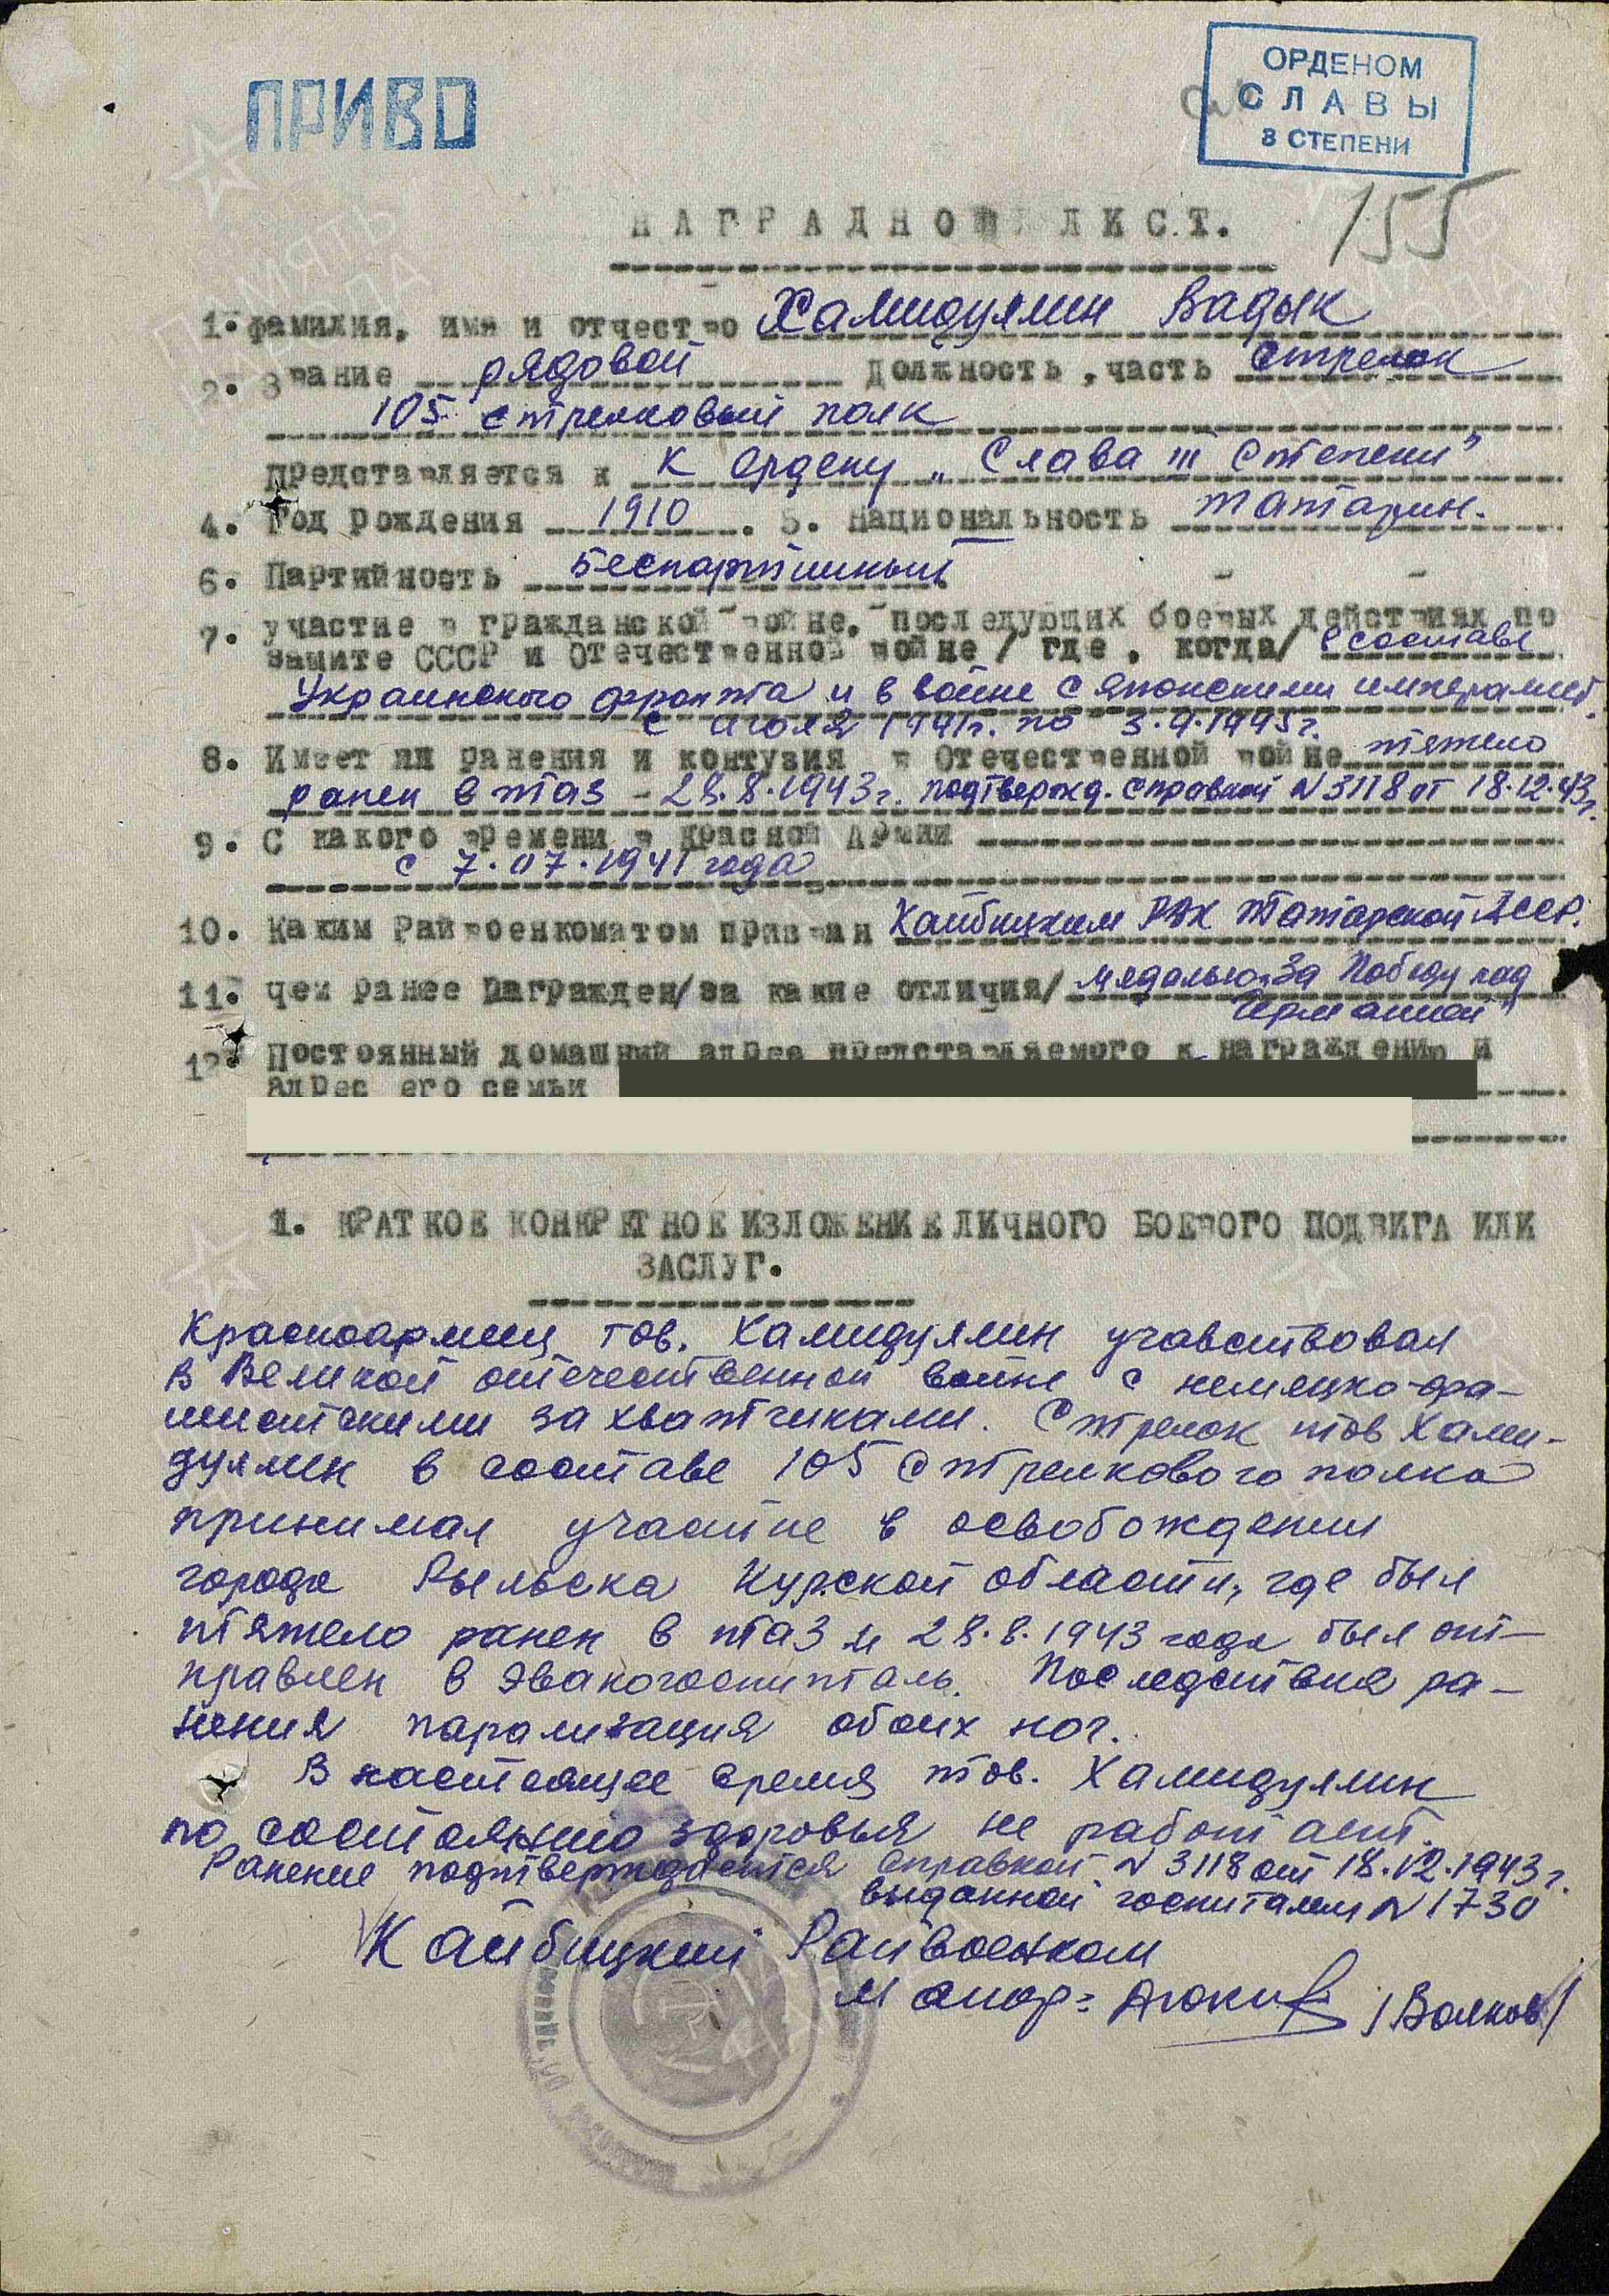 ПРИВО
ОРДЕНОМ
СЛАВЫ
3 СТЕПЕНИ
155
НАГРАДНОЙ ЛИСТ.
1. фамилия, имя и отчество Хамидулмин Вадык
2. Звание рядовой Должность, часть стрелок
105 стрелковый полк
представляется к к ордену „Слава III степени"
4. Год рождения 1910. 5. Национальность татарин.
6. Партийность Беспартийный
7. участие в гражданской войне, последующих боевых действиях по
защите СССР и Отечественной войне /где, когда/ в составе
Украинского фронта и в войне с японскими империалист.
с июля 1941г. по 3.9.1945г.
8. Имеет ли ранения и контузия в Отечественной войне тяжело
ранен в таз - 28.8.1943г. подтвержд. справкой N3118 от 18.12.43г.
9. С какого времени в Красной Армии
с 7.07.1941 года
10. Каким Райвоенкоматом призван Кайбицким РВК Татарской АССР.
11. чем ранее награжден/за какие отличия/ медалью „За Победу над
Германией"
12. Постоянный домашний адрес представляемого к награждению и
адрес его семьи
1. КРАТКОЕ КОНКРЕТНОЕ ИЗЛОЖЕНИЕ ЛИЧНОГО БОЕВОГО ПОДВИГА ИЛИ
ЗАСЛУГ.
Красноармеец тов. Хамидулмин учавствовал
в Великой отечественной войне с немецко-фа-
шистскими захватчиками. Стрелок тов Хами-
дулмин в составе 105 стрелкового полка
принимал участие в освобождении
города Рыльска Курской области, где был
тяжело ранен в таз и 28.8.1943 года был от-
правлен в эвакогоспиталь. Последствия ра-
нения парализация обоих ног.
В настоящее время тов. Хамидулмин
по состоянию здоровья не работает.
Ранение подтверждается справкой N3118 от 18.12.1943г.
выданной госпиталем N1730
Кайбицкий Райвоенком
Майор: /Волков/